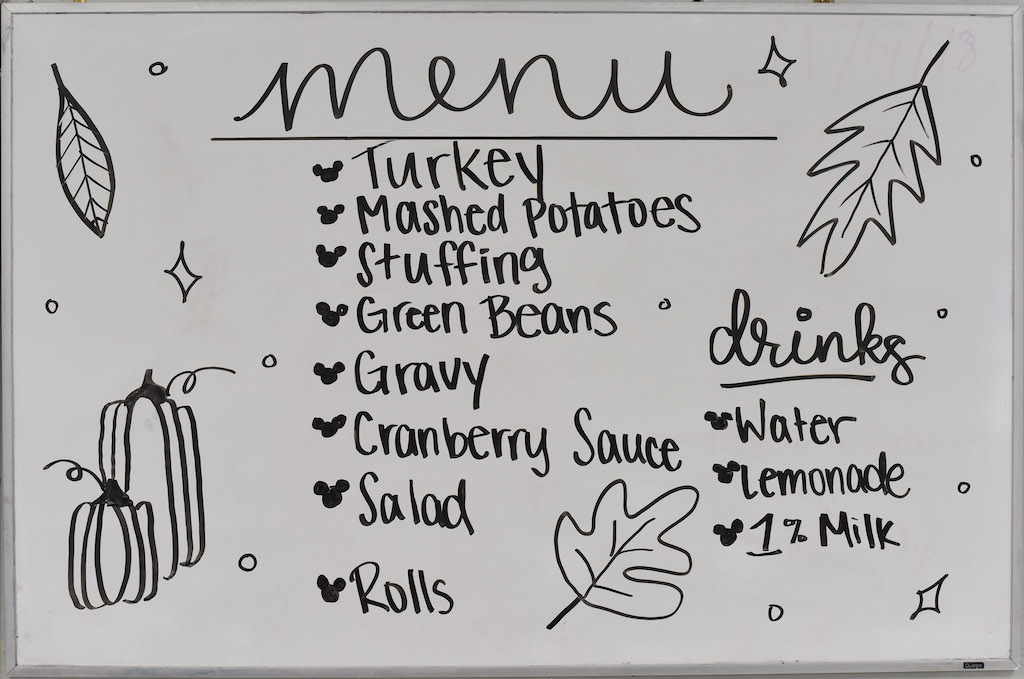 menu
Turkey
Mashed Potatoes
Stuffing
Green Beans
Gravy
Cranberry Sauce
Salad
Rolls
drinks
Water
Lemonade
1% Milk
Quartet